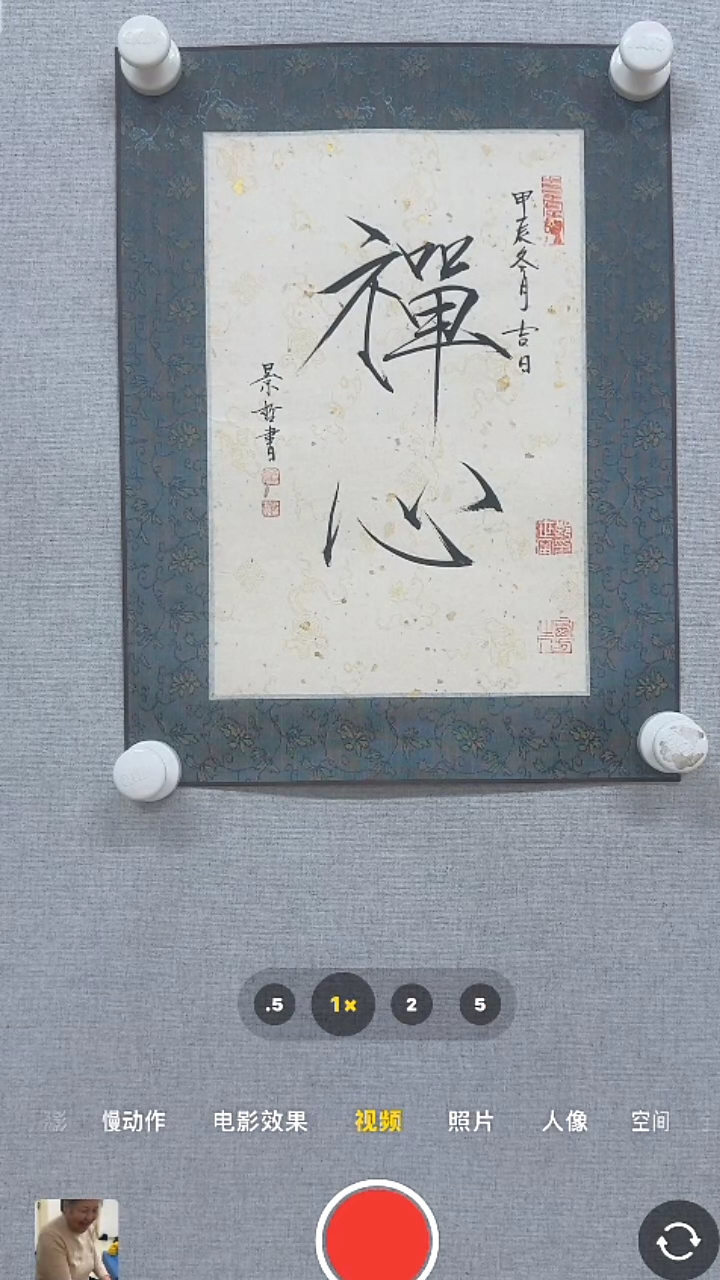 甲辰冬月吉日
禪心
景哲書
.5
1×
2
5
慢动作
电影效果
视频
照片
人像
空间